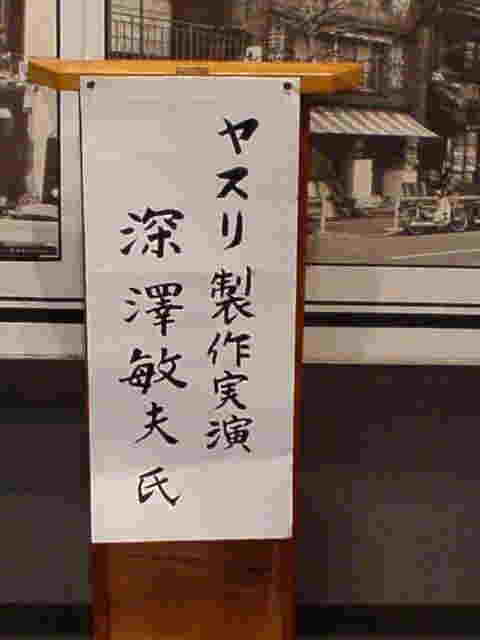 ヤスリ製作実演
深澤敏夫氏